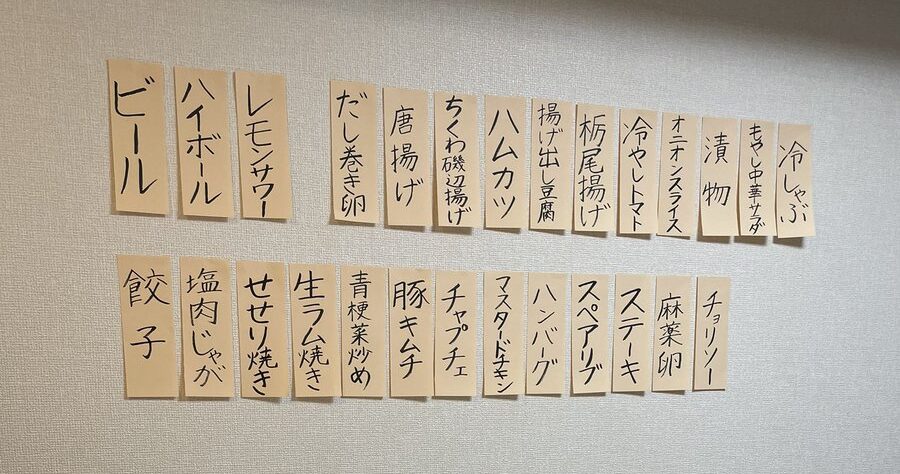 ビール
ハイボール
レモンサワー
だし巻き卵
唐揚げ
ちくわ磯辺揚げ
ハムカツ
揚げ出し豆腐
栃尾揚げ
冷やしトマト
オニオンスライス
漬物
もやし中華サラダ
冷しゃぶ
餃子
塩肉じゃが
せせり焼き
生ラム焼き
青梗菜炒め
豚キムチ
チャプチェ
マスタードチキン
ハンバーグ
スペアリブ
ステーキ
麻薬卵
チョリソー